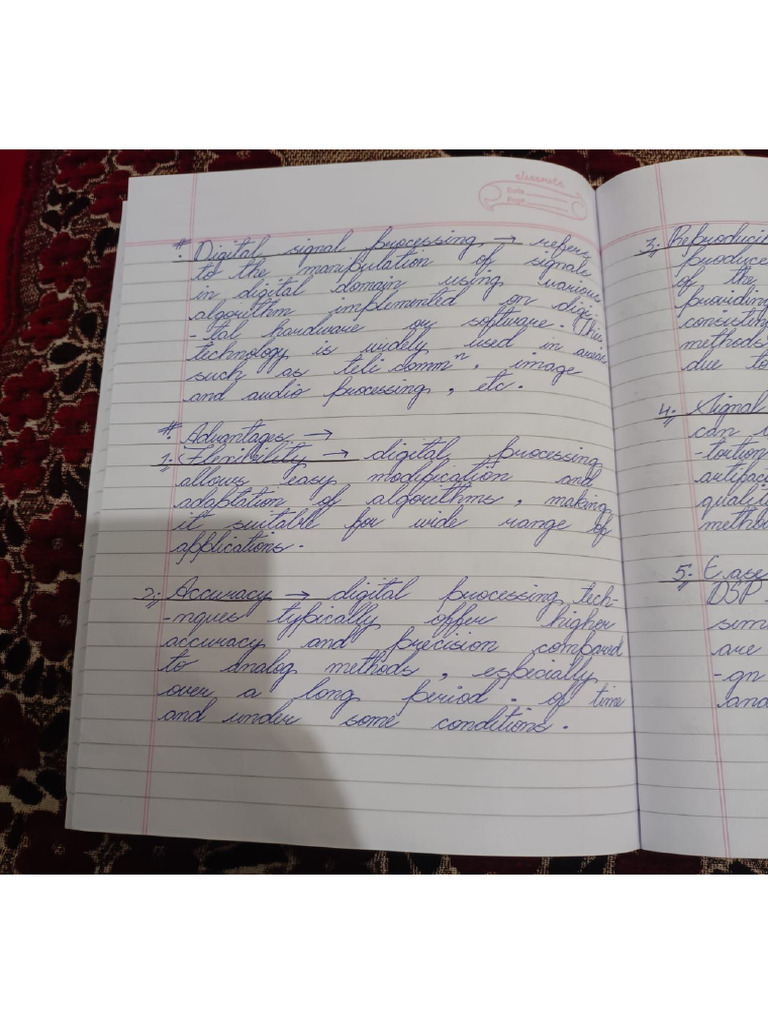 classmate
Date
Page
#. Digital signal processing → refers
to the manipulation of signals
in digital domain using various
algorithm implemented on digi-
-tal hardware or software. This
technology is widely used in areas
such as teli commⁿ, image
and audio processing, etc.
#. Advantages →
1. Flexibility → digital processing
allows easy modification and
adaptation of algorithms, making
it suitable for wide range of
applications.
2. Accuracy → digital processing tech-
-niques typically offer higher
accuracy and precision compared
to analog methods, especially
over a long period. of time
and under some conditions.
3. Reproducib
produce
of the
providing
consisting
methods
due to
4. Signal
can
-tortion
artifac
qualit
metho
5. Ease
DSP
sim
are
-gn
and